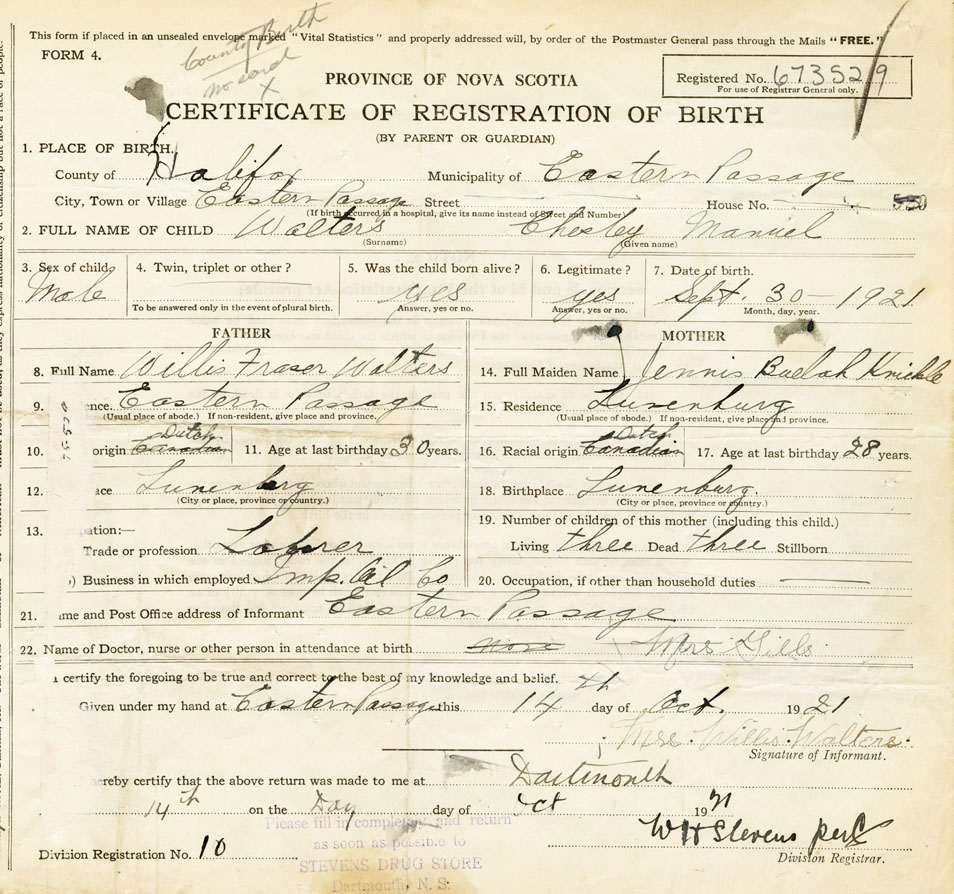 This form if placed in an unsealed envelope marked "Vital Statistics" and properly addressed will, by order of the Postmaster General pass through the Mails "FREE."
FORM 4.
County Birth
no cord
X
PROVINCE OF NOVA SCOTIA
Registered No. 673529
For use of Registrar General only.
CERTIFICATE OF REGISTRATION OF BIRTH
(BY PARENT OR GUARDIAN)
1. PLACE OF BIRTH.
County of Halifax Municipality of Eastern Passage
City, Town or Village Eastern Passage Street House No.
(If birth occurred in a hospital, give its name instead of Street and Number)
2. FULL NAME OF CHILD Walters Chesley Manuel
(Surname) (Given name)
3. Sex of child 4. Twin, triplet or other? 5. Was the child born alive? 6. Legitimate? 7. Date of birth.
Male yes yes Sept. 30 - 1921
To be answered only in the event of plural birth. Answer, yes or no. Answer, yes or no. Month, day, year.
FATHER MOTHER
8. Full Name Willis Fraser Walters 14. Full Maiden Name Jennis Buelah Knickle
9. ence. Eastern Passage 15. Residence Lunenburg
(Usual place of abode.) If non-resident, give place and province. (Usual place of abode.) If non-resident, give place and province.
Dutch Dutch
10. origin Canadian 11. Age at last birthday 30 years. 16. Racial origin Canadian 17. Age at last birthday 28 years.
12. ace Lunenburg 18. Birthplace Lunenburg.
(City or place, province or country.) (City or place, province or country.)
13. pation:— 19. Number of children of this mother (including this child.)
Trade or profession Labrer Living three Dead three Stillborn
) Business in which employed Imp. Oil Co 20. Occupation, if other than household duties
21. me and Post Office address of Informant Eastern Passage
22. Name of Doctor, nurse or other person in attendance at birth none Mrs Gills
I certify the foregoing to be true and correct to the best of my knowledge and belief.
Given under my hand at Eastern Passage this 14th day of Oct. 1921
Mrs. Willis Walters
Signature of Informant.
ereby certify that the above return was made to me at Dartmouth
14th on the Day day of Oct 1921
Please fill in completely and return
as soon as possible to
STEVENS DRUG STORE
Dartmouth, N. S.
W H Stevens per
Division Registrar.
Division Registration No. 10